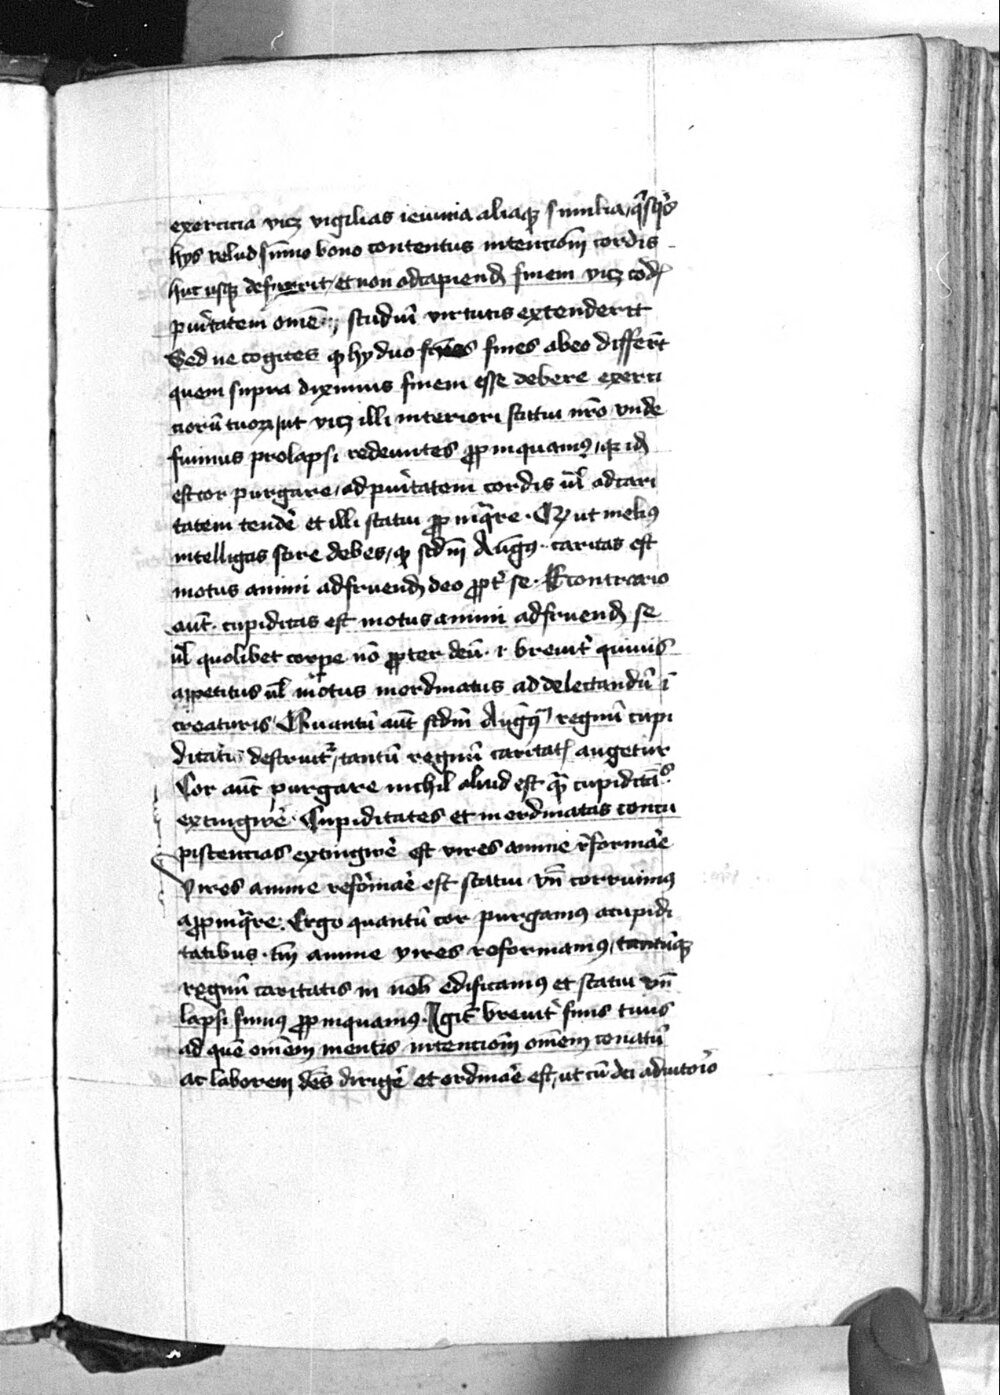 exercicia vicz vigilias ieiunia aliaque similia, quisquis
hys velud summo bono contentus intencionem cordis
huc usque defixerit, et non ad capiendum finem vicz cordis
puritatem omne studium virtutis extenderit
Sed ne cogites quod hy duo fines abeo differunt
quem supra diximus finem esse debere exerci
ciorum tuorum, ut vicz illi interiori statui nostro unde
fuimus prolapsi redeuntes propinquamus, quia idem
est cor purgare, ad puritatem cordis vel ad cari
tatem tendere et illi statui propinquare. Et ut melius
intelligas scire debes, quod secundum Augustinum. caritas est
motus animi ad fruendum deo propter se. E contrario
autem. cupiditas est motus animi ad fruendum se
vel quolibet corpore non propter deum. et breviter quivis
appetitus vel motus inordinatus ad delectandum in
creaturis. Quantum autem secundum Augustinum regnum cupi
ditatis destruitur, tantum regnum caritatis augetur
Cor autem purgare nichil aliud est quam cupiditates
extingwere. Cupiditates et inordinatas concu
piscencias extingwere est vires anime reformare
Vires anime reformare est statui unde corruimus
appropinquare. Ergo quantum cor purgamus a cupidi
tatibus. tantum anime vires reformamus, tantumque
regnum caritatis in nobis edificamus et statui unde
lapsi sumus propinquamus. Igitur breviter finis tuus
ad quem omnem mentis intencionem omnem conatum
ac laborem debes dirigere et ordinare est, ut cum dei adiutorio